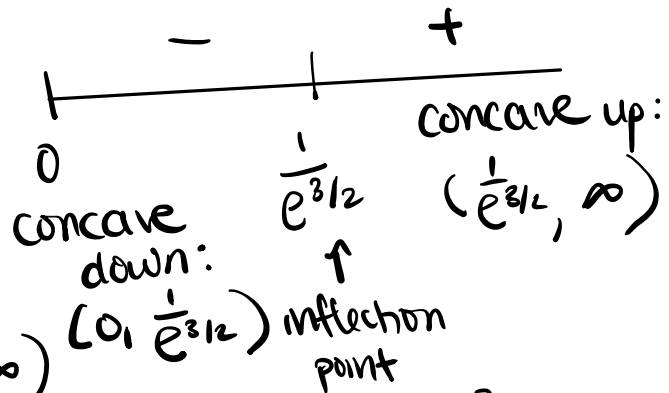 − +
0 1/e^3/2 concave up:
(1/e^3/2, ∞)
concave
down: ↑
(0, 1/e^3/2) inflection
∞) point